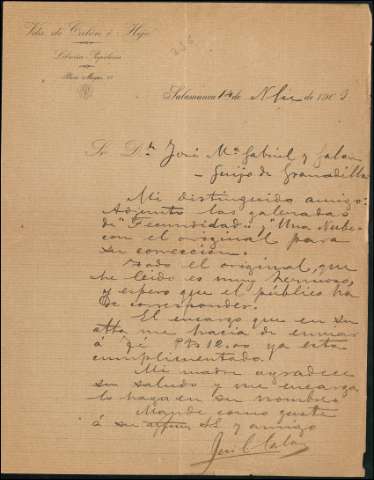 Vda. de Calón é Hijo
Librería Papelería
Plaza Mayor,
Salamanca 14 de Nbre de 1903
Sr. Dn José Ma Gabriel y Galan
- Guijo de Granadilla
Mi distinguido amigo:
Adjunto las galeradas
de "Fecundidad", "Una Nube"
con el original para
su corrección.
Todo el original, que
he leido es muy hermoso,
y espero que el público ha
de corresponder.
El encargo que en su
atta me hacia de enviar
á Pts 12.00 ya está
cumplimentado.
Mi madre agradece
su saludo y me encarga
lo haga en su nombre.
Mande como guste
á su affmo S.S. y amigo
José C. Calon